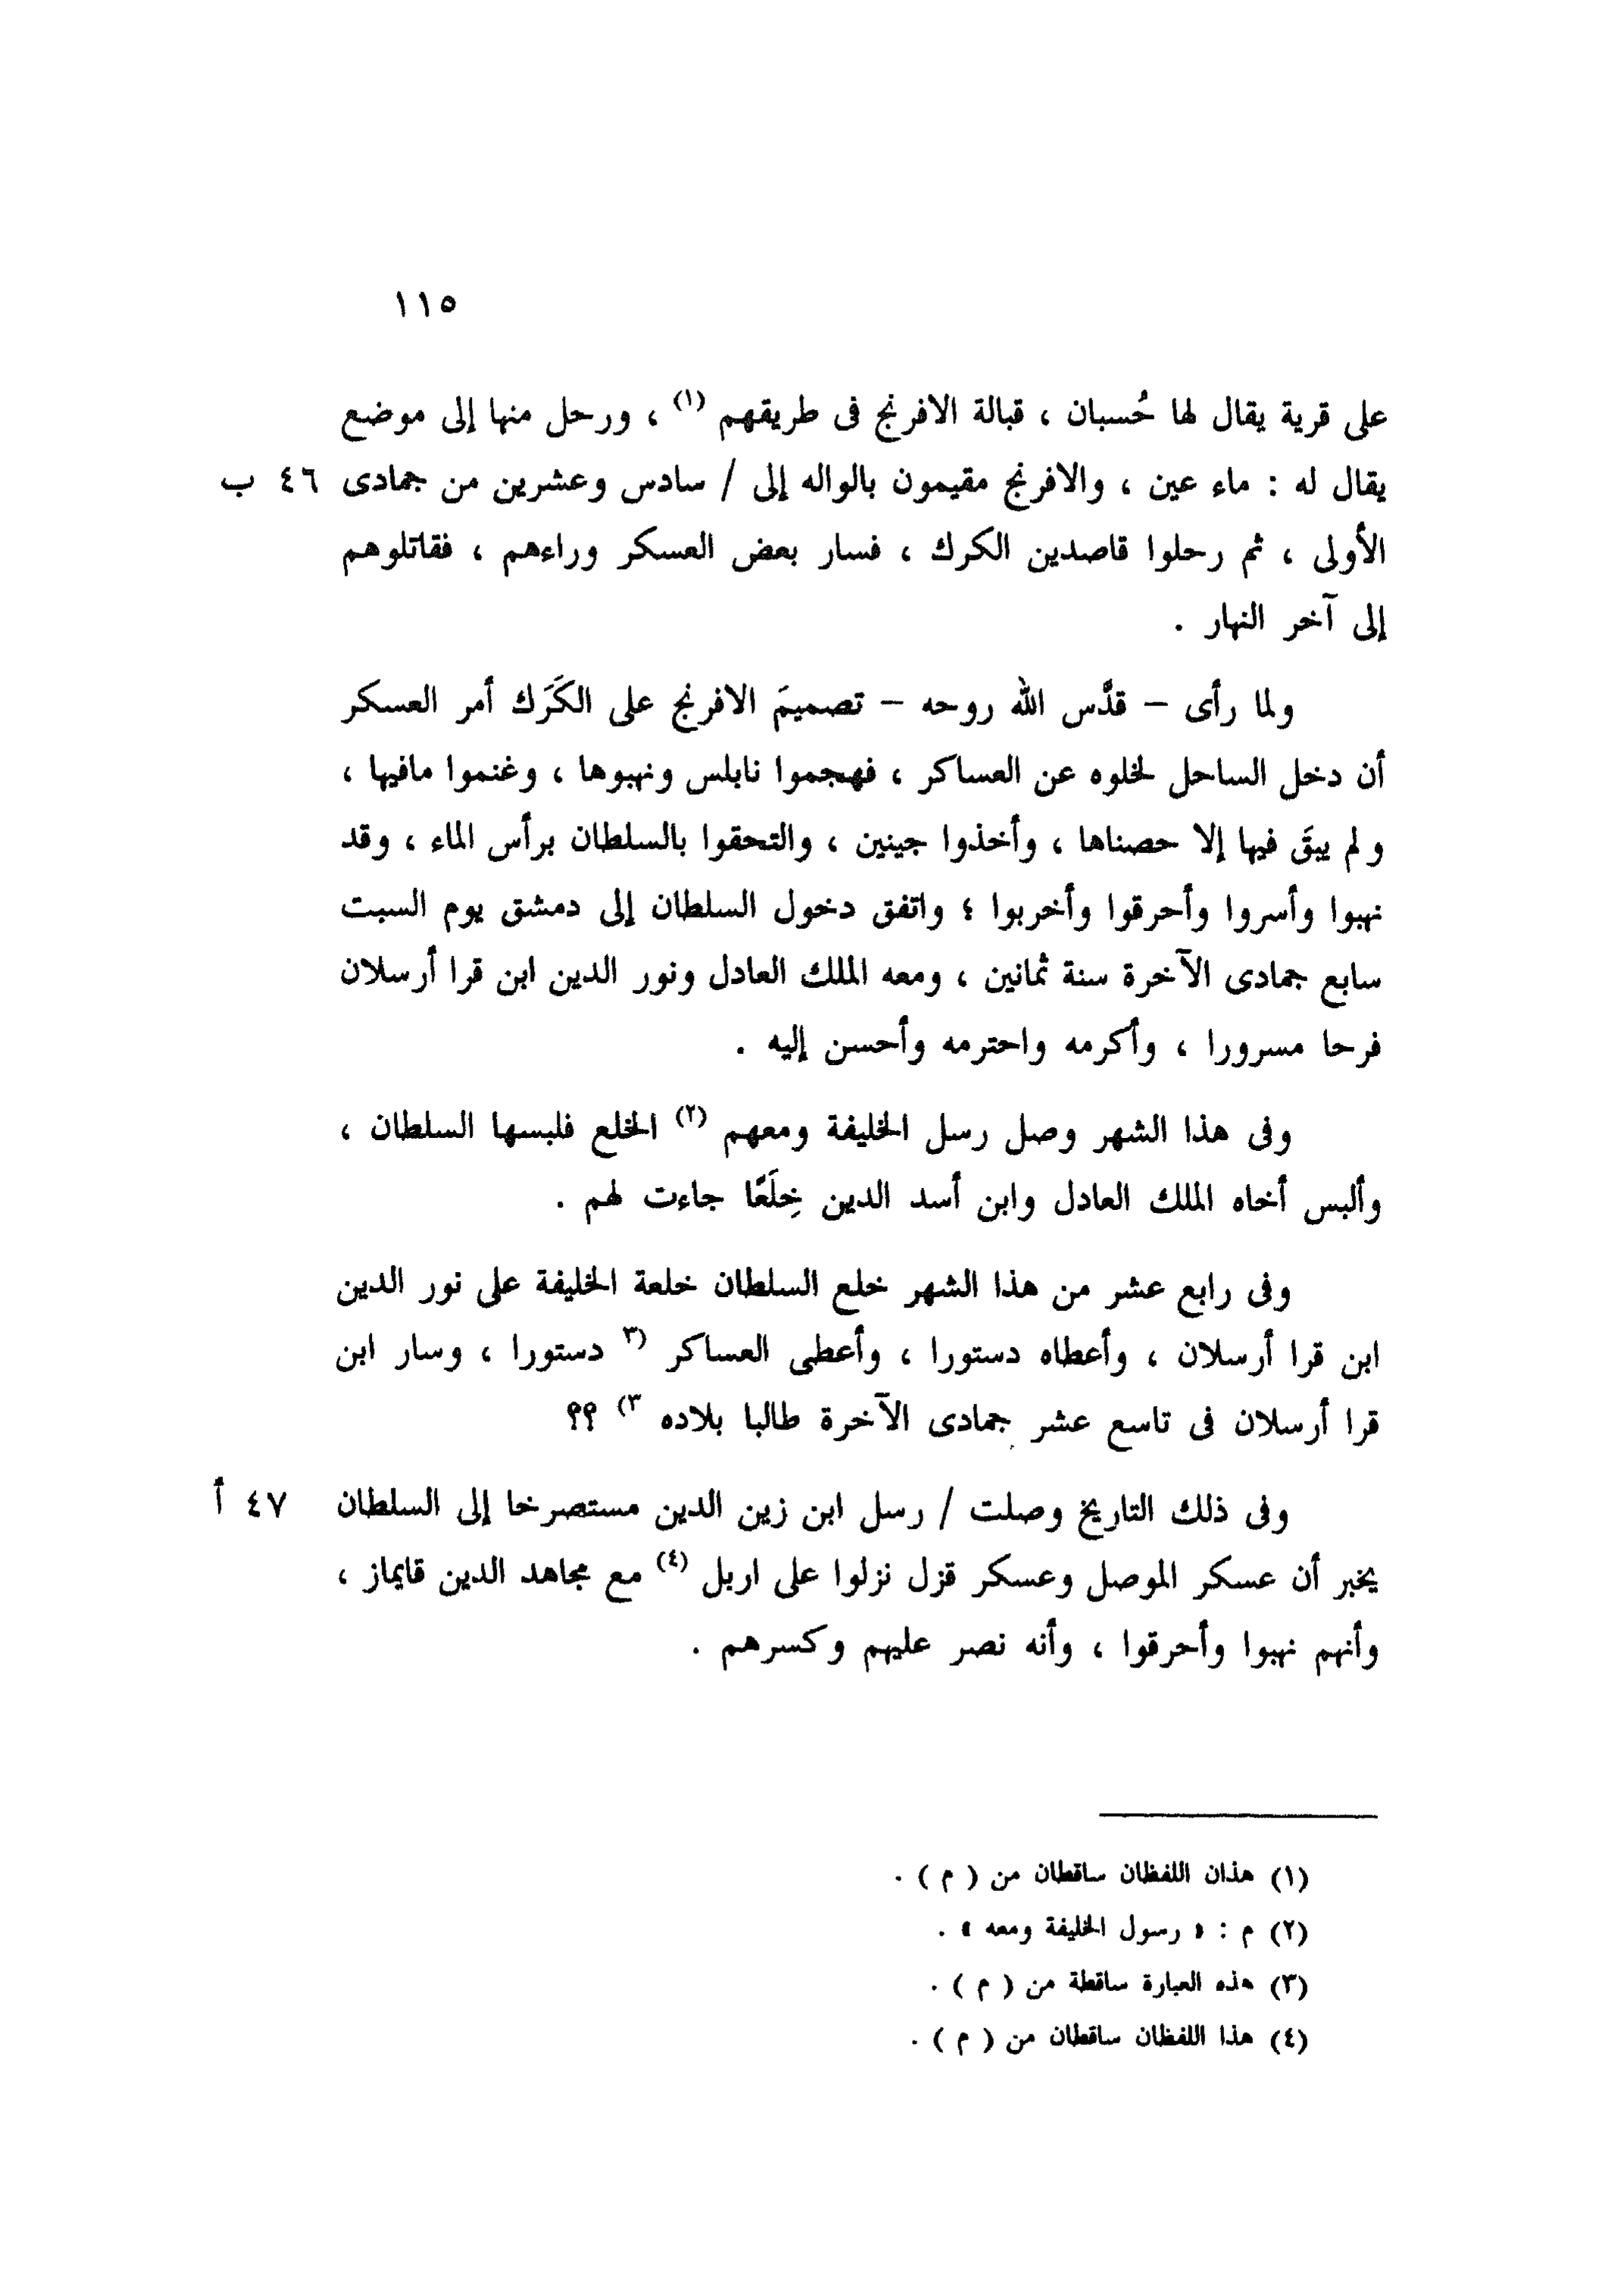 ١١٥
على قرية يقال لها حُسبان ، قبالة الافرنج فى طريقهم (١) ، ورحل منها إلى موضع
يقال له : ماء عين ، والافرنج مقيمون بالواله إلى / سادس وعشرين من جمادى ٤٦ ب
الأولى ، ثم رحلوا قاصدين الكرك ، فسار بعض العسكر وراءهم ، فقاتلوهم
إلى آخر النهار .
ولما رأى – قدَّس الله روحه – تصميمَ الافرنج على الكَرَك أمر العسكر
أن دخل الساحل لخلوه عن العساكر ، فهجموا نابلس ونهبوها ، وغنموا مافيها ،
ولم يبقَ فيها إلا حصناها ، وأخذوا جينين ، والتحقوا بالسلطان برأس الماء ، وقد
نهبوا وأسروا وأحرقوا وأخربوا ؛ واتفق دخول السلطان إلى دمشق يوم السبت
سابع جمادى الآخرة سنة ثمانين ، ومعه الملك العادل ونور الدين ابن قرا أرسلان
فرحا مسرورا ، وأكرمه واحترمه وأحسن إليه .
وفى هذا الشهر وصل رسل الخليفة ومعهم (٢) الخلع فلبسها السلطان ،
وألبس أخاه الملك العادل وابن أسد الدين خِلَعًا جاءت لهم .
وفى رابع عشر من هذا الشهر خلع السلطان خلعة الخليفة على نور الدين
ابن قرا أرسلان ، وأعطاه دستورا ، وأعطى العساكر (٣ دستورا ، وسار ابن
قرا أرسلان فى تاسع عشر جمادى الآخرة طالبا بلاده ٣) ؟؟
وفى ذلك التاريخ وصلت / رسل ابن زين الدين مستصرخا إلى السلطان ٤٧ أ
يخبر أن عسكر الموصل وعسكر قزل نزلوا على اربل (٤) مع مجاهد الدين قايماز ،
وأنهم نهبوا وأحرقوا ، وأنه نصر عليهم وكسرهم .
(١) هذان اللفظان ساقطان من ( م ) .
(٢) م : « رسول الخليفة ومعه » .
(٣) هذه العبارة ساقطة من ( م ) .
(٤) هذا اللفظان ساقطان من ( م ) .